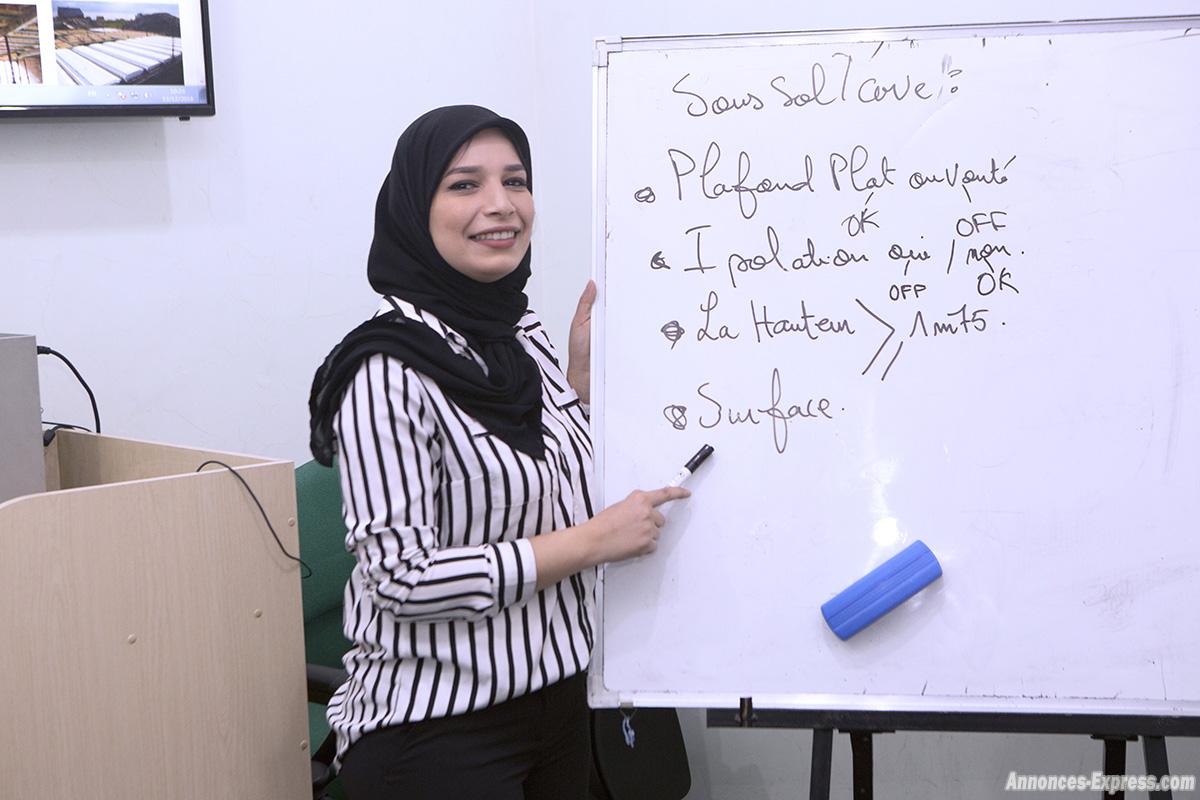 Sous Sol / cave ?
Plafond Plat ou Vouté
OK OFF
Isolation oui / non.
OFF OK
La Hauteur ⩾ 1m75.
Surface.
Annonces-Express.com